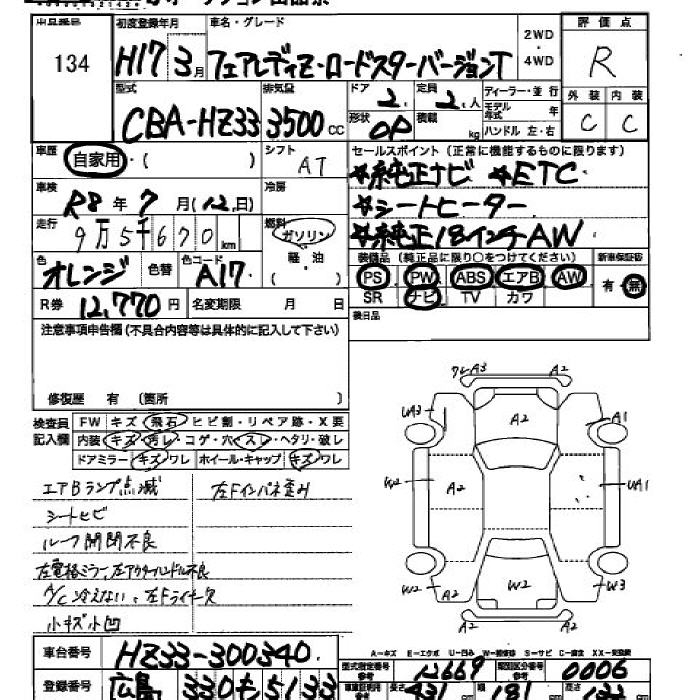 出品番号
134
初度登録年月
H17年3月
車名・グレード
フェアレディZ・ロードスターバージョンT
2WD
・
4WD
評価点
R
外装 内装
C C
型式
CBA-HZ33
排気量
3500cc
ドア
2.
定員
2.人
形状
OP
積載
kg
ディーラー・並行
モデル年式 年
ハンドル 左・右
車歴
自家用・( )
シフト
AT
車検
R8年7月(12日)
冷房
走行
9万5千670km
燃料
ガソリン
軽・油
色
オレンジ
色替
色コード
A17
R券
12,770円
名変期限 月 日
セールスポイント(正常に機能するものに限ります)
☆純正ナビ ☆ETC
☆シートヒーター
☆純正18インチAW
装備品(純正品に限り○をつけてください)
PS PW ABS エアB AW
SR ナビ TV カワ
新車保証書
有・無
後日品
注意事項申告欄(不具合内容等は具体的に記入して下さい)
修復歴 有 〔箇所 〕
検査員
記入欄
FW キズ・飛石・ヒビ割・リペア跡・X要
内装・キズ・汚レ・コゲ・穴・スレ・ヘタリ・破レ
ドアミラー・キズ・ワレ ホイール・キャップ・キズ・ワレ
エアBランプ点滅
シートヒビ
ルーフ開閉不良
左電格ミラー、左アウターハンドル不良
A/C冷えない、左Fライナー欠
小キズ小凹
左Fインパネ歪み
クレA3
A2
UA3
A2
A1
W2
A2
UA1
W2
A2
W2
W3
A2
A-キズ E-エクボ U-凹み W-補修跡 S-サビ C-腐食 XX-交換歴
車台番号
HZ33-300340
登録番号
広島 330 も 5133
型式指定番号
参考
12669
類別区分番号
参考
0006
長さ
431
幅
181
高さ